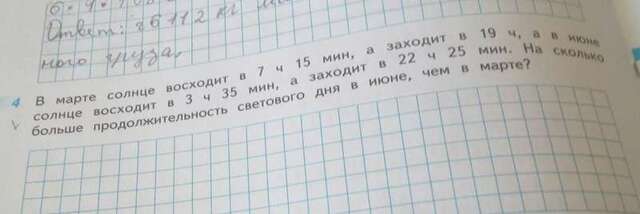 Ответ: 86112 кг
ного груза.
4 В марте солнце восходит в 7 ч 15 мин, а заходит в 19 ч, а в июне
солнце восходит в 3 ч 35 мин, а заходит в 22 ч 25 мин. На сколько
больше продолжительность светового дня в июне, чем в марте?